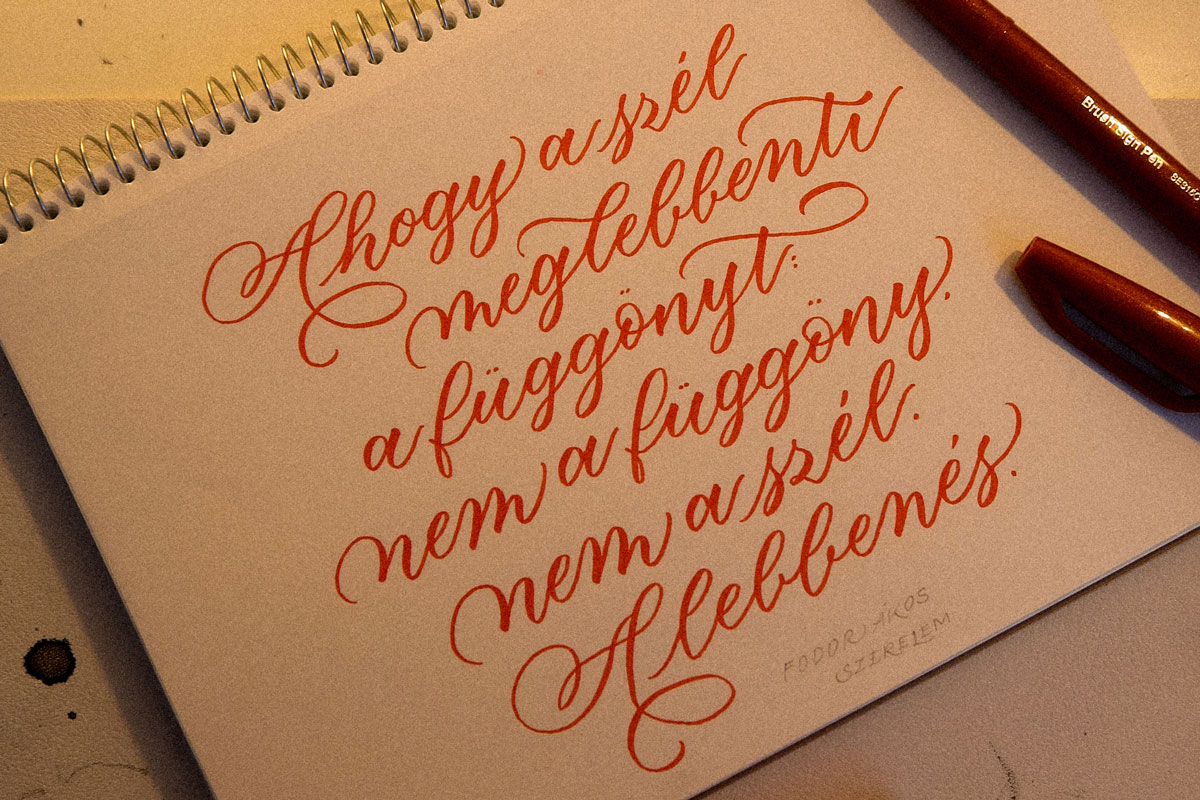 Ahogy a szél
meglebbenti
a függönyt:
nem a függöny.
nem a szél.
A lebbenés.
FODOR ÁKOS
SZERELEM
Brush Sign Pen